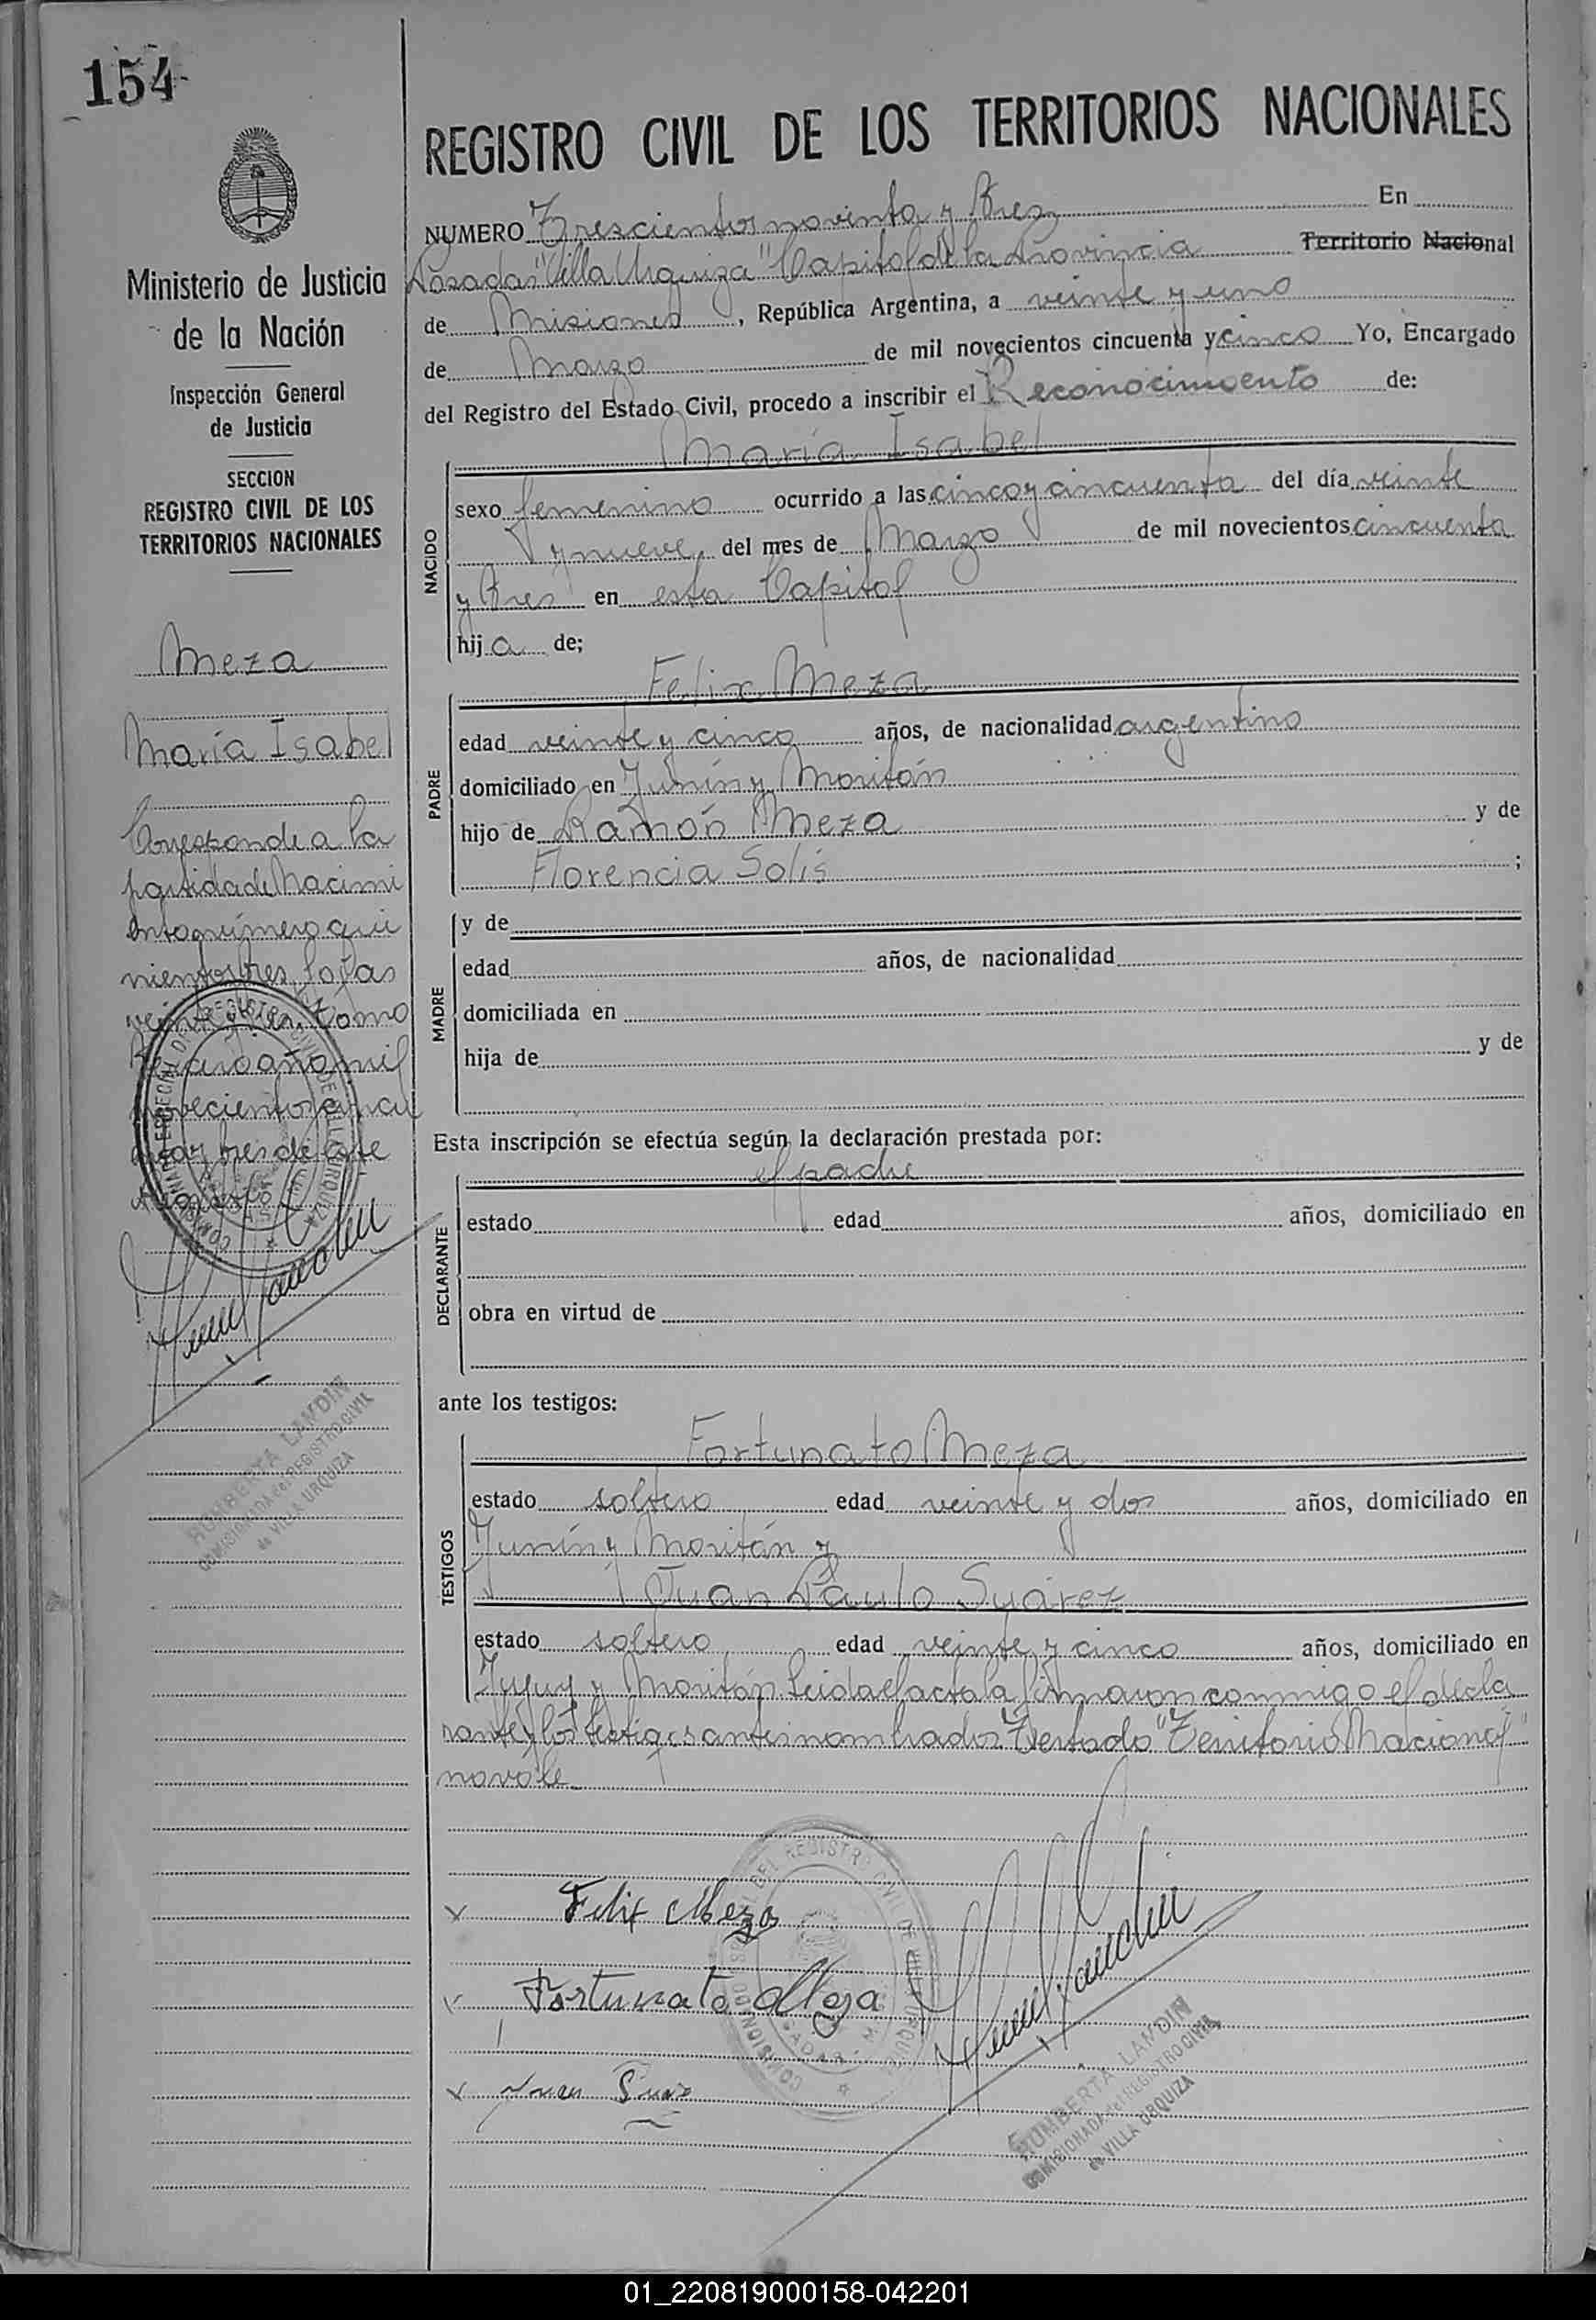 154
REGISTRO CIVIL DE LOS TERRITORIOS NACIONALES
Ministerio de Justicia
de la Nación
Inspección General
de Justicia
SECCION
REGISTRO CIVIL DE LOS
TERRITORIOS NACIONALES
Meza
María Isabel
Corresponde a la
partida de Nacimi
ento número qui
nientos tres, fojas
veinte y tres, tomo
año mil
novecientos cincu
enta y tres de este
NUMERO Trescientos noventa y tres En
Posadas "Villa Urquiza" Capital de la Provincia Territorio Nacional
de Misiones, República Argentina, a veinte y uno
de Marzo de mil novecientos cincuenta y cinco Yo, Encargado
del Registro del Estado Civil, procedo a inscribir el Reconocimiento de:
María Isabel
NACIDO
sexo femenino ocurrido a las cinco y cincuenta del día veinte
y nueve, del mes de Marzo de mil novecientos cincuenta
y tres en esta Capital
hija de;
Felix Meza
PADRE
edad veinte y cinco años, de nacionalidad argentino
domiciliado en Junín y Moritán
hijo de Ramón Meza y de
Florencia Solis ;
MADRE
y de
edad años, de nacionalidad
domiciliada en
hija de y de
Esta inscripción se efectúa según la declaración prestada por:
el padre
DECLARANTE
estado edad años, domiciliado en
obra en virtud de
ante los testigos:
Fortunato Meza
TESTIGOS
estado soltero edad veinte y dos años, domiciliado en
Junín y Moritán y
Juan Paulo Suárez
estado soltero edad veinte y cinco años, domiciliado en
Jujuy y Moritán. Leida el acta la firmaron conmigo el decla
rante y los testigos antes nombrados. Testado "Territorio Nacional"
no vale
Felix Meza
Fortunato Meza
Juan
HUMBERTA LANDIN
COMISIONADA del REGISTRO CIVIL
de VILLA URQUIZA
HUMBERTA LANDIN
COMISIONADA del REGISTRO CIVIL
de VILLA URQUIZA
01_220819000158-042201